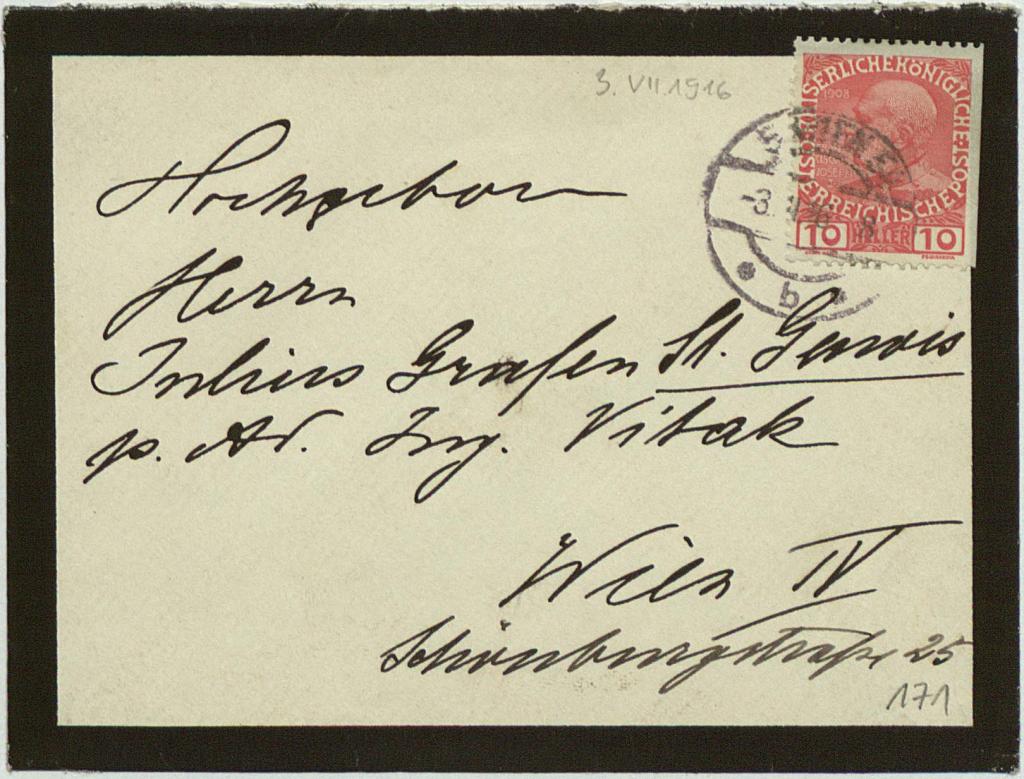 3. VII. 1916
KAISERLICHE KÖNIGLICHE
ÖSTERREICHISCHE POST
1908
10 HELLER 10
WIEN
b
Hochgeboren
Herrn
Julius Grafen St. Genois
p. Ad. Ing. Vitak
Wien IV
Schönburgstraße 25
171